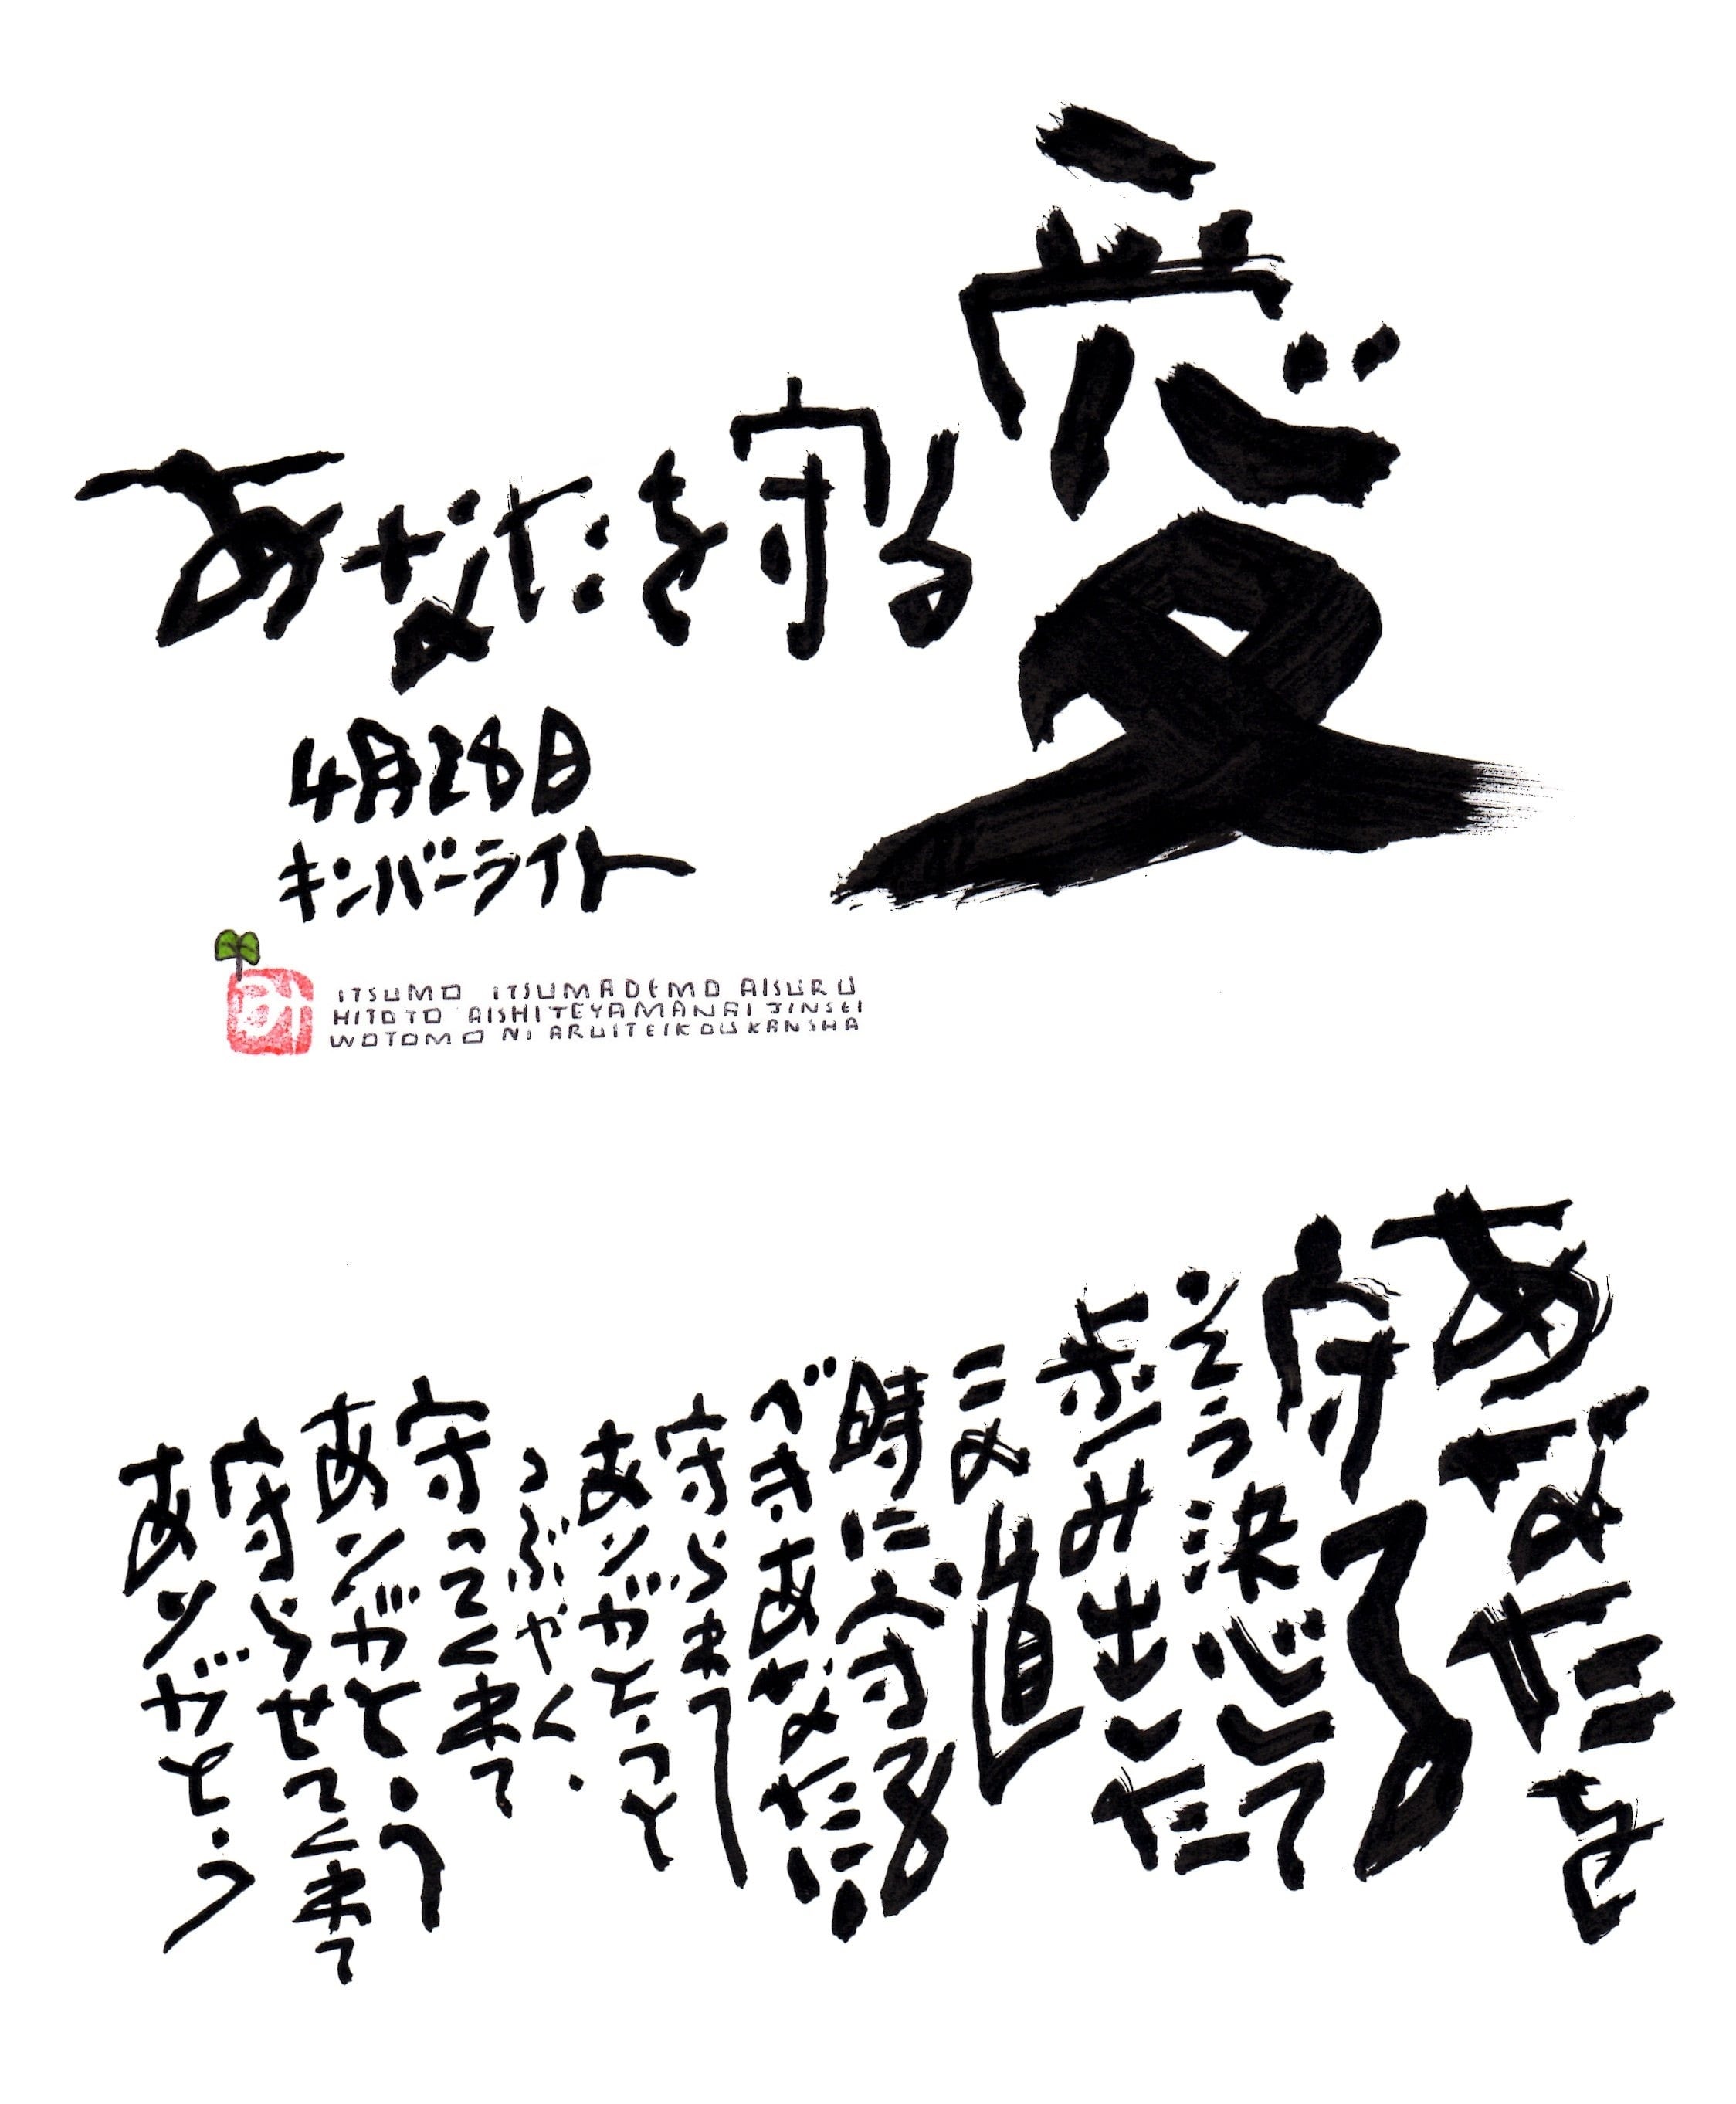 あなたを守る愛
4月28日
キンバーライト
ITSUMO ITSUMADEMO AISURU
HITOTO AISHITEYAMANAI JINSEI
WOTOMO NI ARUITEIKOU KANSHA
あなたを
守る
そう決心して
歩み出した
この道
時に守る
べきあなたに
守られて
ありがとうと
つぶやく。
守ってくれて
ありがとう
守らせてくれて
ありがとう